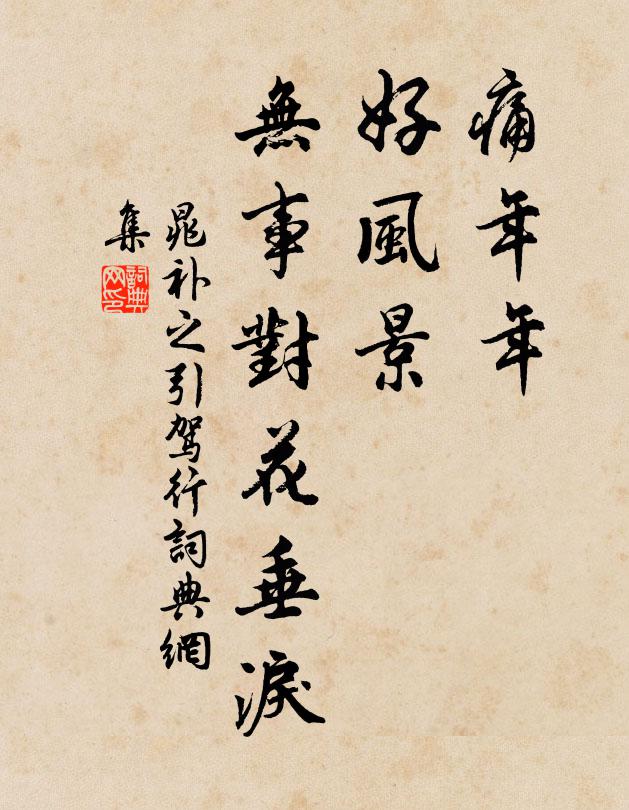 痛年年
好風景
無事對花垂淚
晁补之引駕行詞典網
集
詞典
网印